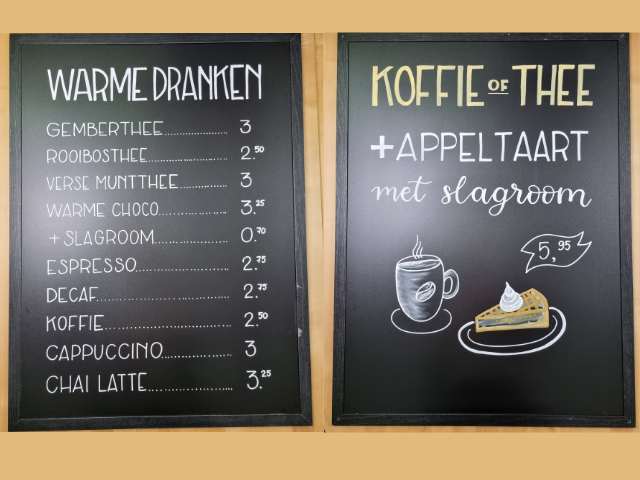 WARME DRANKEN
GEMBERTHEE..................... 3
ROOIBOSTHEE..................... 2.50
VERSE MUNTTHEE............. 3
WARME CHOCO.................. 3.25
+ SLAGROOM.................... 0.70
ESPRESSO......................... 2.75
DECAF.............................. 2.75
KOFFIE............................. 2.50
CAPPUCCINO.................... 3
CHAI LATTE...................... 3.25
KOFFIE OF THEE
+ APPELTAART
met slagroom
5,95